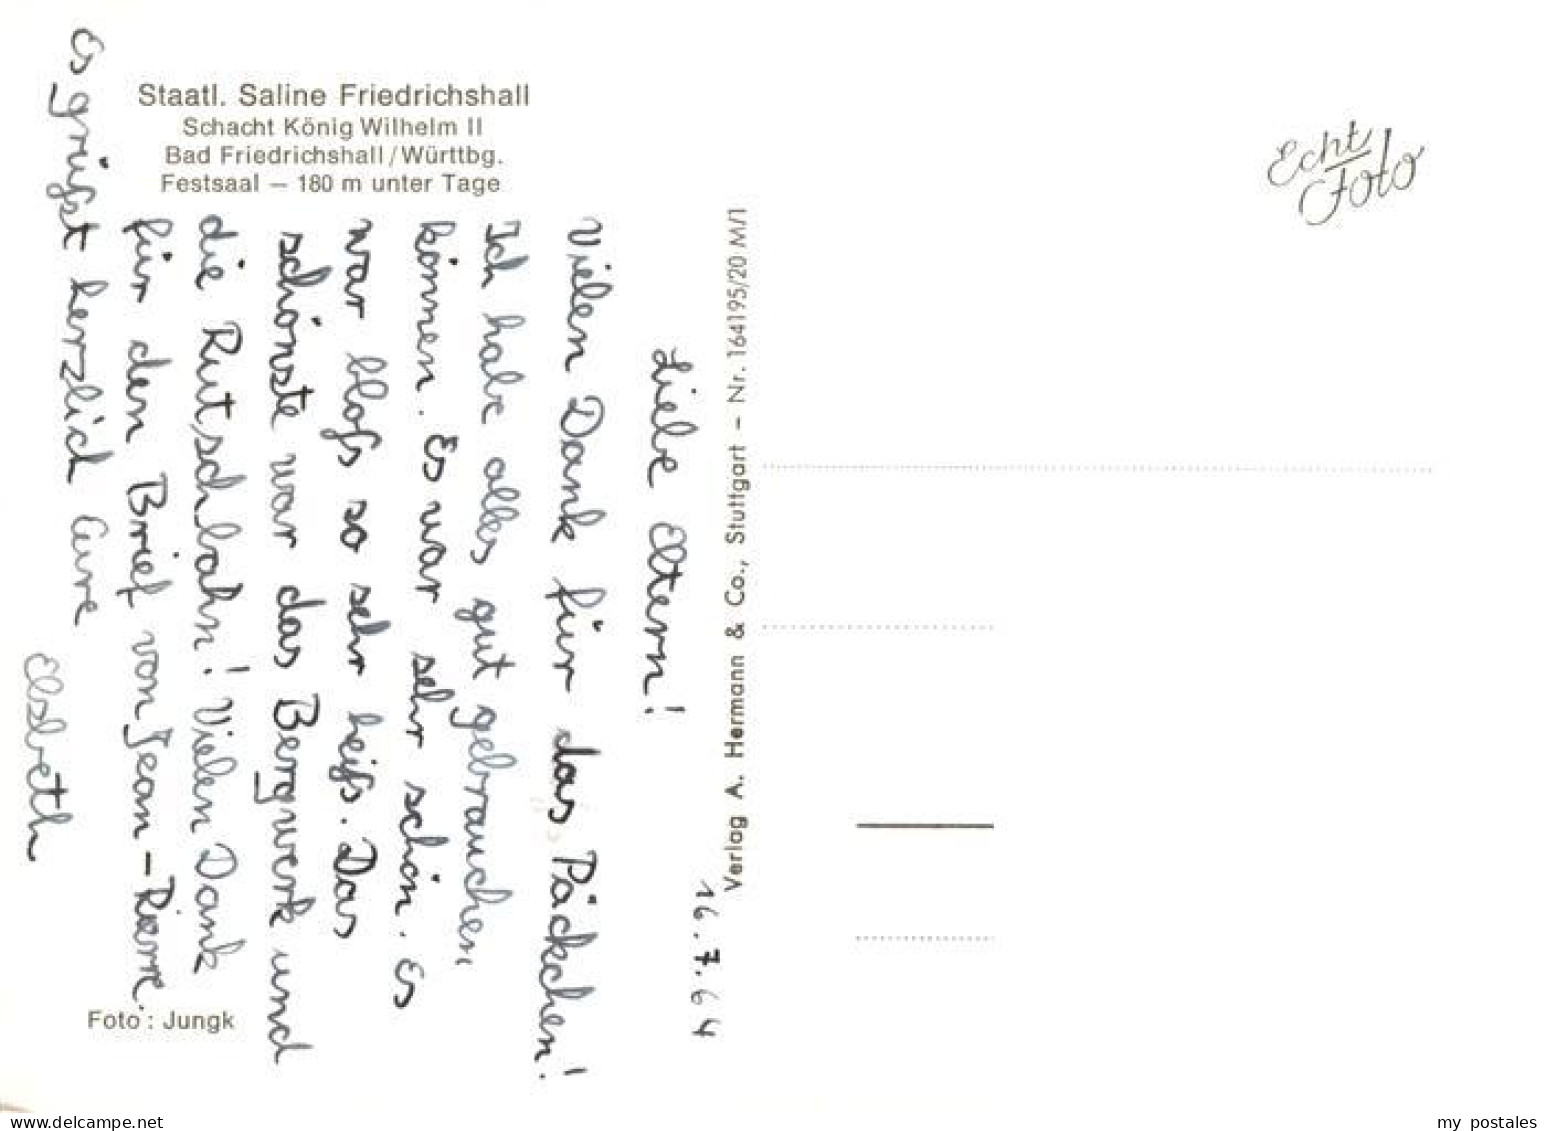 Staatl. Saline Friedrichshall
Schacht König Wilhelm II
Bad Friedrichshall/Württbg.
Festsaal – 180 m unter Tage
16.7.64
Liebe Eltern!
Vielen Dank für das Päckchen!
Ich habe alles gut gebrauchen
können. Es war sehr schön. Es
war bloß so sehr heiß. Das
schönste war das Bergwerk und
die Rutschbahn! Vielen Dank
für den Brief von Jean-Pierre.
Es grüßt herzlich Eure
Elsbeth
Foto: Jungk
Verlag A. Hermann & Co., Stuttgart – Nr. 164195/20 M/1
Echt
Foto
www.delcampe.net
my_postales